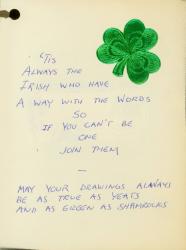 'TIS
ALWAYS THE
IRISH WHO HAVE
A WAY WITH THE WORDS
SO
IF YOU CAN'T BE
ONE
JOIN THEM
—
MAY YOUR DRAWINGS ALWAYS
BE AS TRUE AS YEATS
AND AS GREEN AS SHAMROCKS